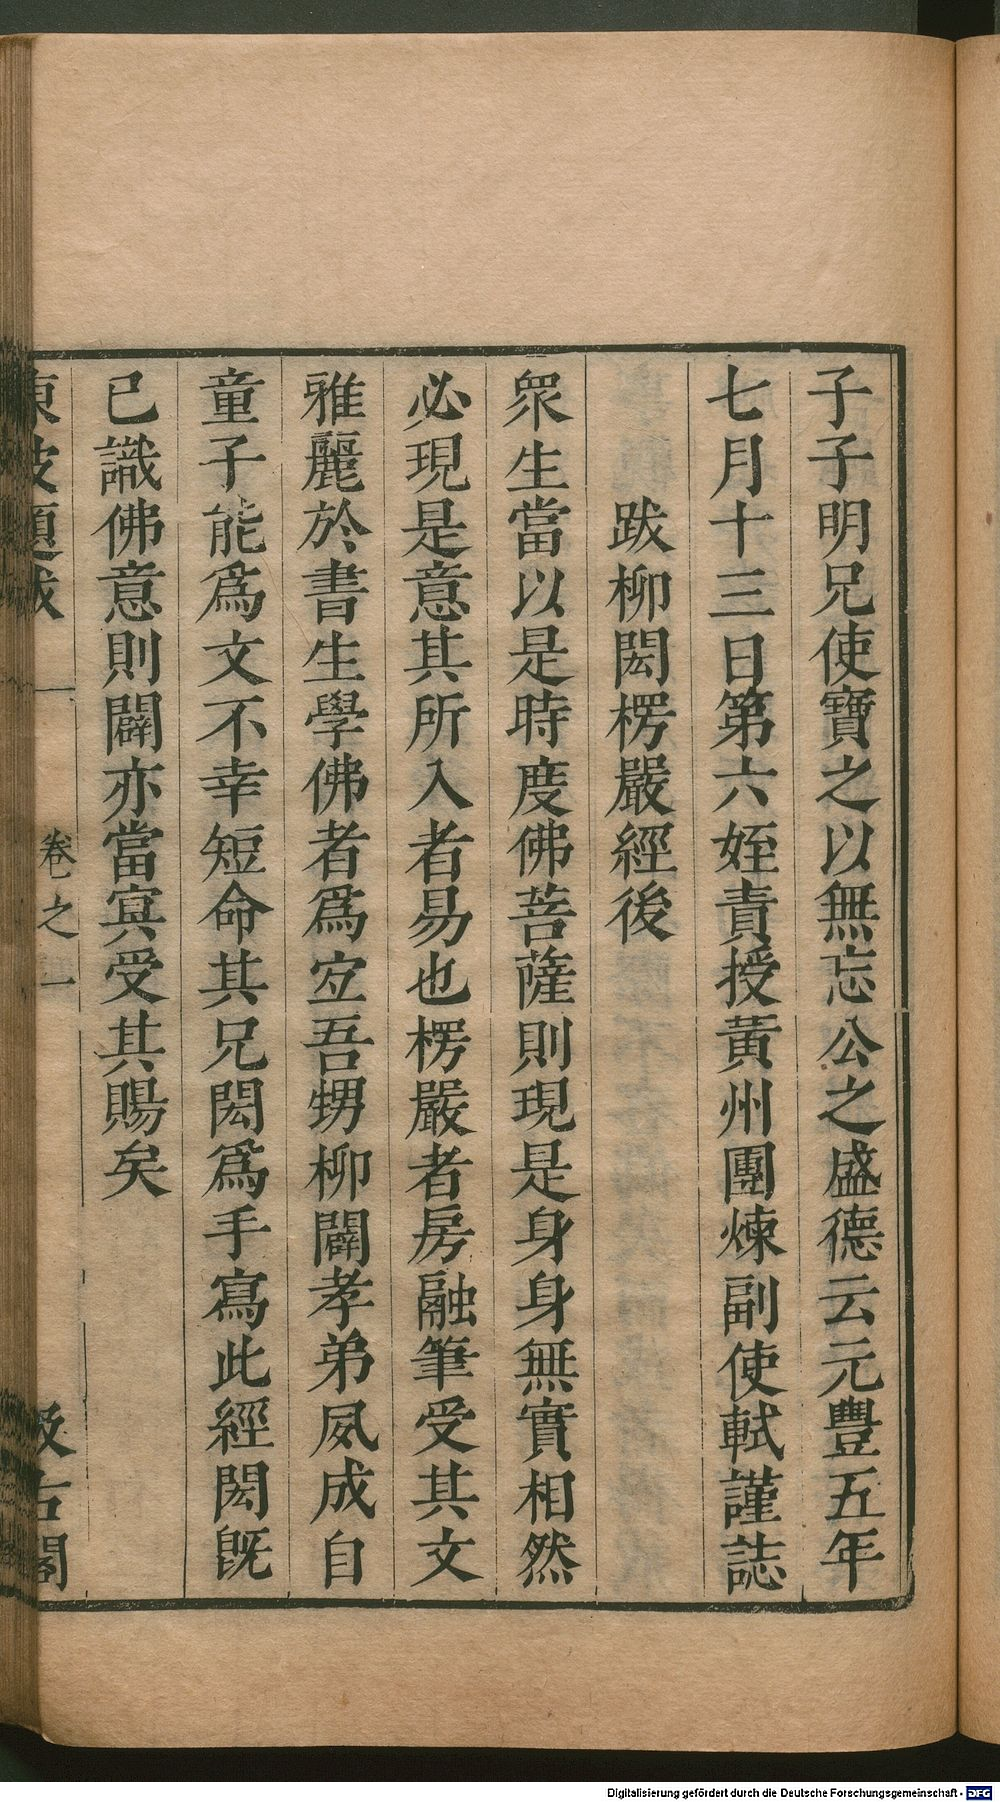 子子明兄使寶之以無忘公之盛德云元豐五年
七月十三日第六姪責授黃州團煉副使軾謹誌
跋柳閎楞嚴經後
眾生當以是時度佛菩薩則現是身身無實相然
必現是意其所入者易也楞嚴者房融筆受其文
雅麗於書生學佛者爲宜吾甥柳闢孝弟夙成自
童子能爲文不幸短命其兄閎爲手寫此經閎旣
已識佛意則闢亦當冥受其賜矣
東坡題跋 卷之一 汲古閣
Digitalisierung gefördert durch die Deutsche Forschungsgemeinschaft - DFG